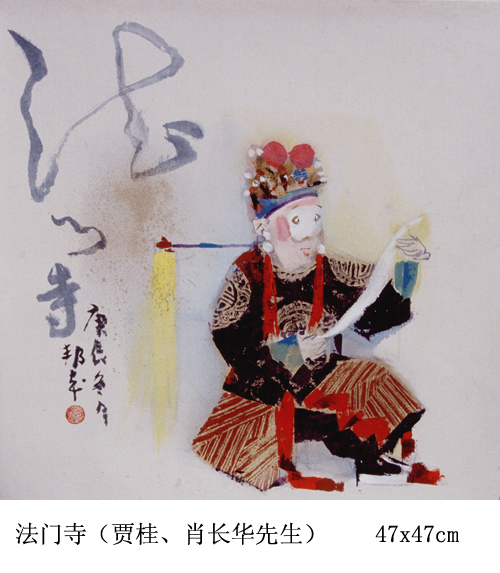 法门寺
庚辰冬月
法门寺（贾桂、肖长华先生） 47x47cm